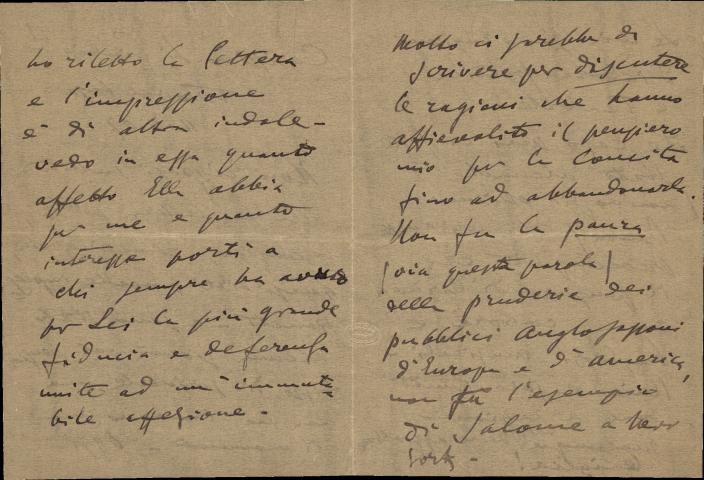 ho riletto la lettera
e l'impressione
è di altra indole -
vedo in essa quanto
affetto Ella abbia
per me e quanto
interesse porti a
chi sempre ha avuto
per Lei la più grande
fiducia e deferenza
unite ad un'immuta=
bile affezione.
Molto ci sarebbe da
scrivere per discutere
le ragioni che hanno
affievolito il pensiero
mio per la Conchita
fino ad abbandonarla.
Non fu la paura
(via questa parola)
della pruderie dei
pubblici anglosassoni
d'Europa e d'America,
non fu l'esempio
di Salome a New
York -